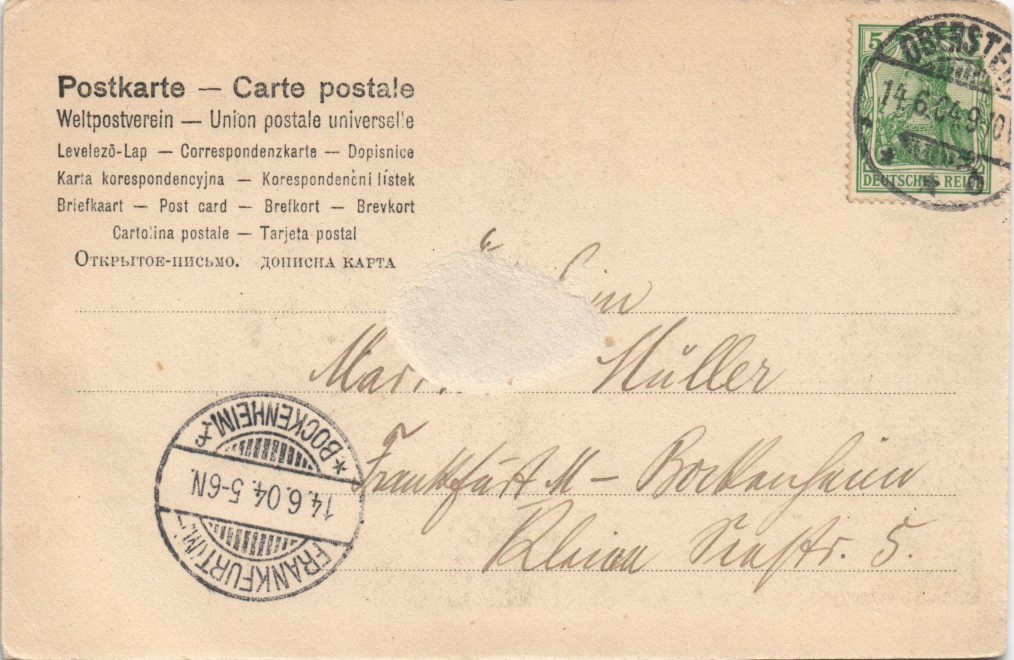 Postkarte — Carte postale
Weltpostverein — Union postale universelle
Levelező-Lap — Correspondenzkarte — Dopisnice
Karta korespondencyjna — Korespondenční lístek
Briefkaart — Post card — Brefkort — Brevkort
Cartolina postale — Tarjeta postal
Открытое-письмо. дописна карта
5
DEUTSCHES REICH
OBERSTE
14.6.04.9-10V
* * b
Mar Müller
Frankfurt M – Bockenheim
Seestr. 5.
* BOCKENHEIM *
14.6.04. 5-6N.
FRANKFURT (M.)